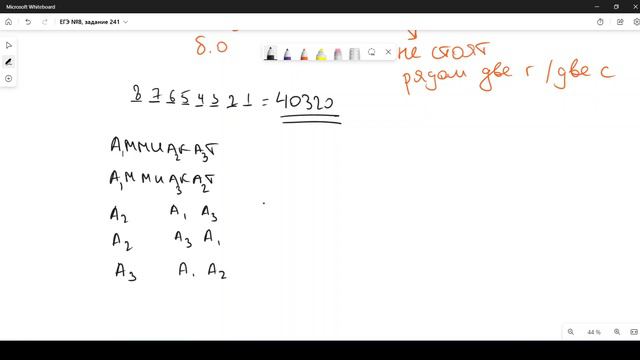 Microsoft Whiteboard
ЕГЭ №8, задание 241
б.о
не стоят
рядом две г / две с
8 7 6 5 4 3 2 1 = 40320
А₁ММИА₂КА₃Т
А₁ММИА₃КА₂Т
А₂ А₁ А₃
А₂ А₃ А₁
А₃ А₁ А₂
44 %